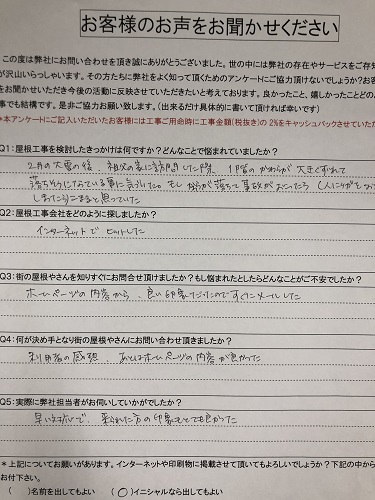 お客様のお声をお聞かせください
この度は弊社にお問い合わせを頂き誠にありがとうございました。世の中には弊社の存在やサービスをご存知
が沢山いらっしゃいます。その方たちに弊社をよく知って頂くためのアンケートにご協力頂けないでしょうか?お客
をお聞かせいただき今後の活動に反映させていただきたいと考えております。良かったこと、嬉しかったことどのよ
事でも結構です。是非ご協力お願い致します。(出来るだけ具体的に書いて頂ければ幸いです)
*本アンケートにご記入いただいたお客様には工事ご用命時に工事金額(税抜き)の2%をキャッシュバックさせていただ
Q1:屋根工事を検討したきっかけは何ですか?どんなことで悩まれていましたか?
2月の大雪の後、祖父の家に訪問した際、1階のかわらが大きくずれて
落ちそうになっている事に気づいた。もしかわらが落ちて事故がおこったら(人に
しまったらこまると思っていた
Q2:屋根工事会社をどのように探しましたか?
インターネットでヒットした
Q3:街の屋根やさんを知りすぐにお問合せ頂けましたか?もし悩まれたとしたらどんなことがご不安でしたか?
ホームページの内容から、良い印象だったのですぐにメールした
Q4:何が決め手となり街の屋根やさんにお問い合わせ頂きましたか?
利用者の感想、あとはホームページの内容が良かった
Q5:実際に弊社担当者がお伺いしていかがでしたか?
早い対応で、来られた方の印象もとても良かった
*上記についてお願いがあります。インターネットや印刷物に掲載させて頂いてもよろしいでしょうか?下記の中から
お付下さい。
( )名前を出してもよい (○)イニシャルなら出してもよい